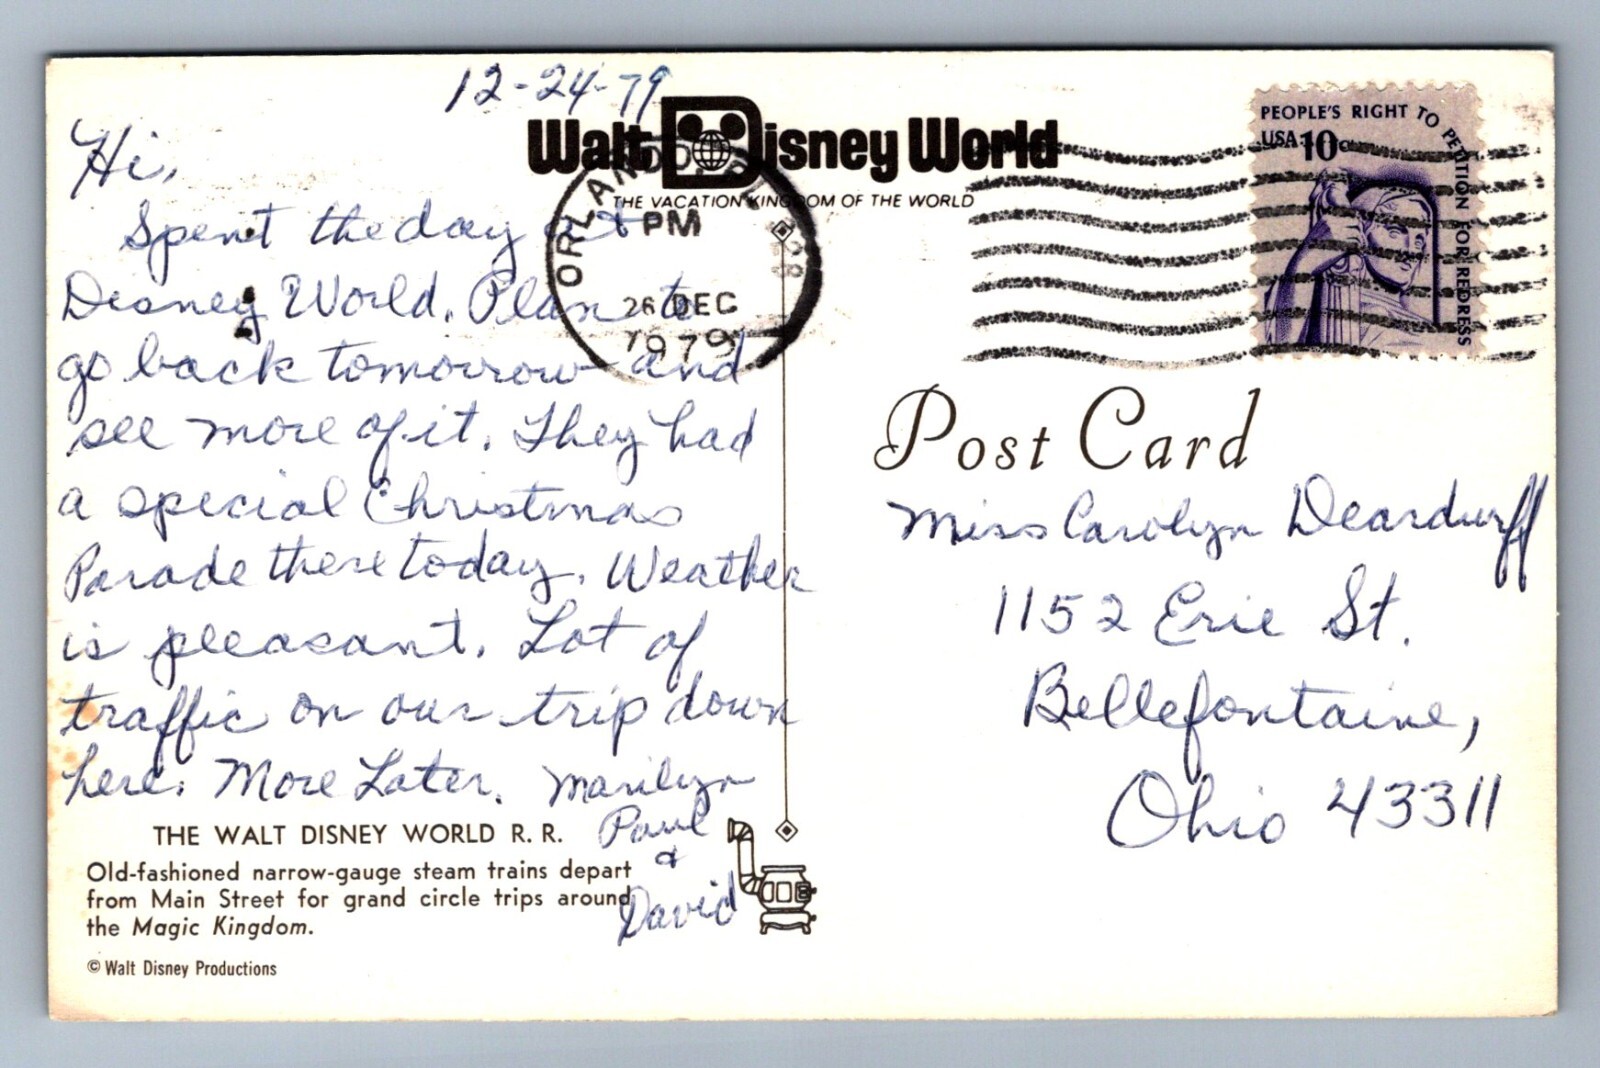 12-24-79
Walt Disney World
THE VACATION KINGDOM OF THE WORLD
Hi,
Spent the day at
Disney World. Plan to
go back tomorrow and
see more of it. They had
a special Christmas
Parade there today. Weather
is pleasant. Lot of
traffic on our trip down
here. More Later. Marilyn
Paul
&
David
THE WALT DISNEY WORLD R. R.
Old-fashioned narrow-gauge steam trains depart
from Main Street for grand circle trips around
the Magic Kingdom.
© Walt Disney Productions
ORLANDO, FL 328
PM
26 DEC
1979
PEOPLE'S RIGHT TO PETITION FOR REDRESS
USA 10c
Post Card
Miss Carolyn Deardurff
1152 Erie St.
Bellefontaine,
Ohio 43311